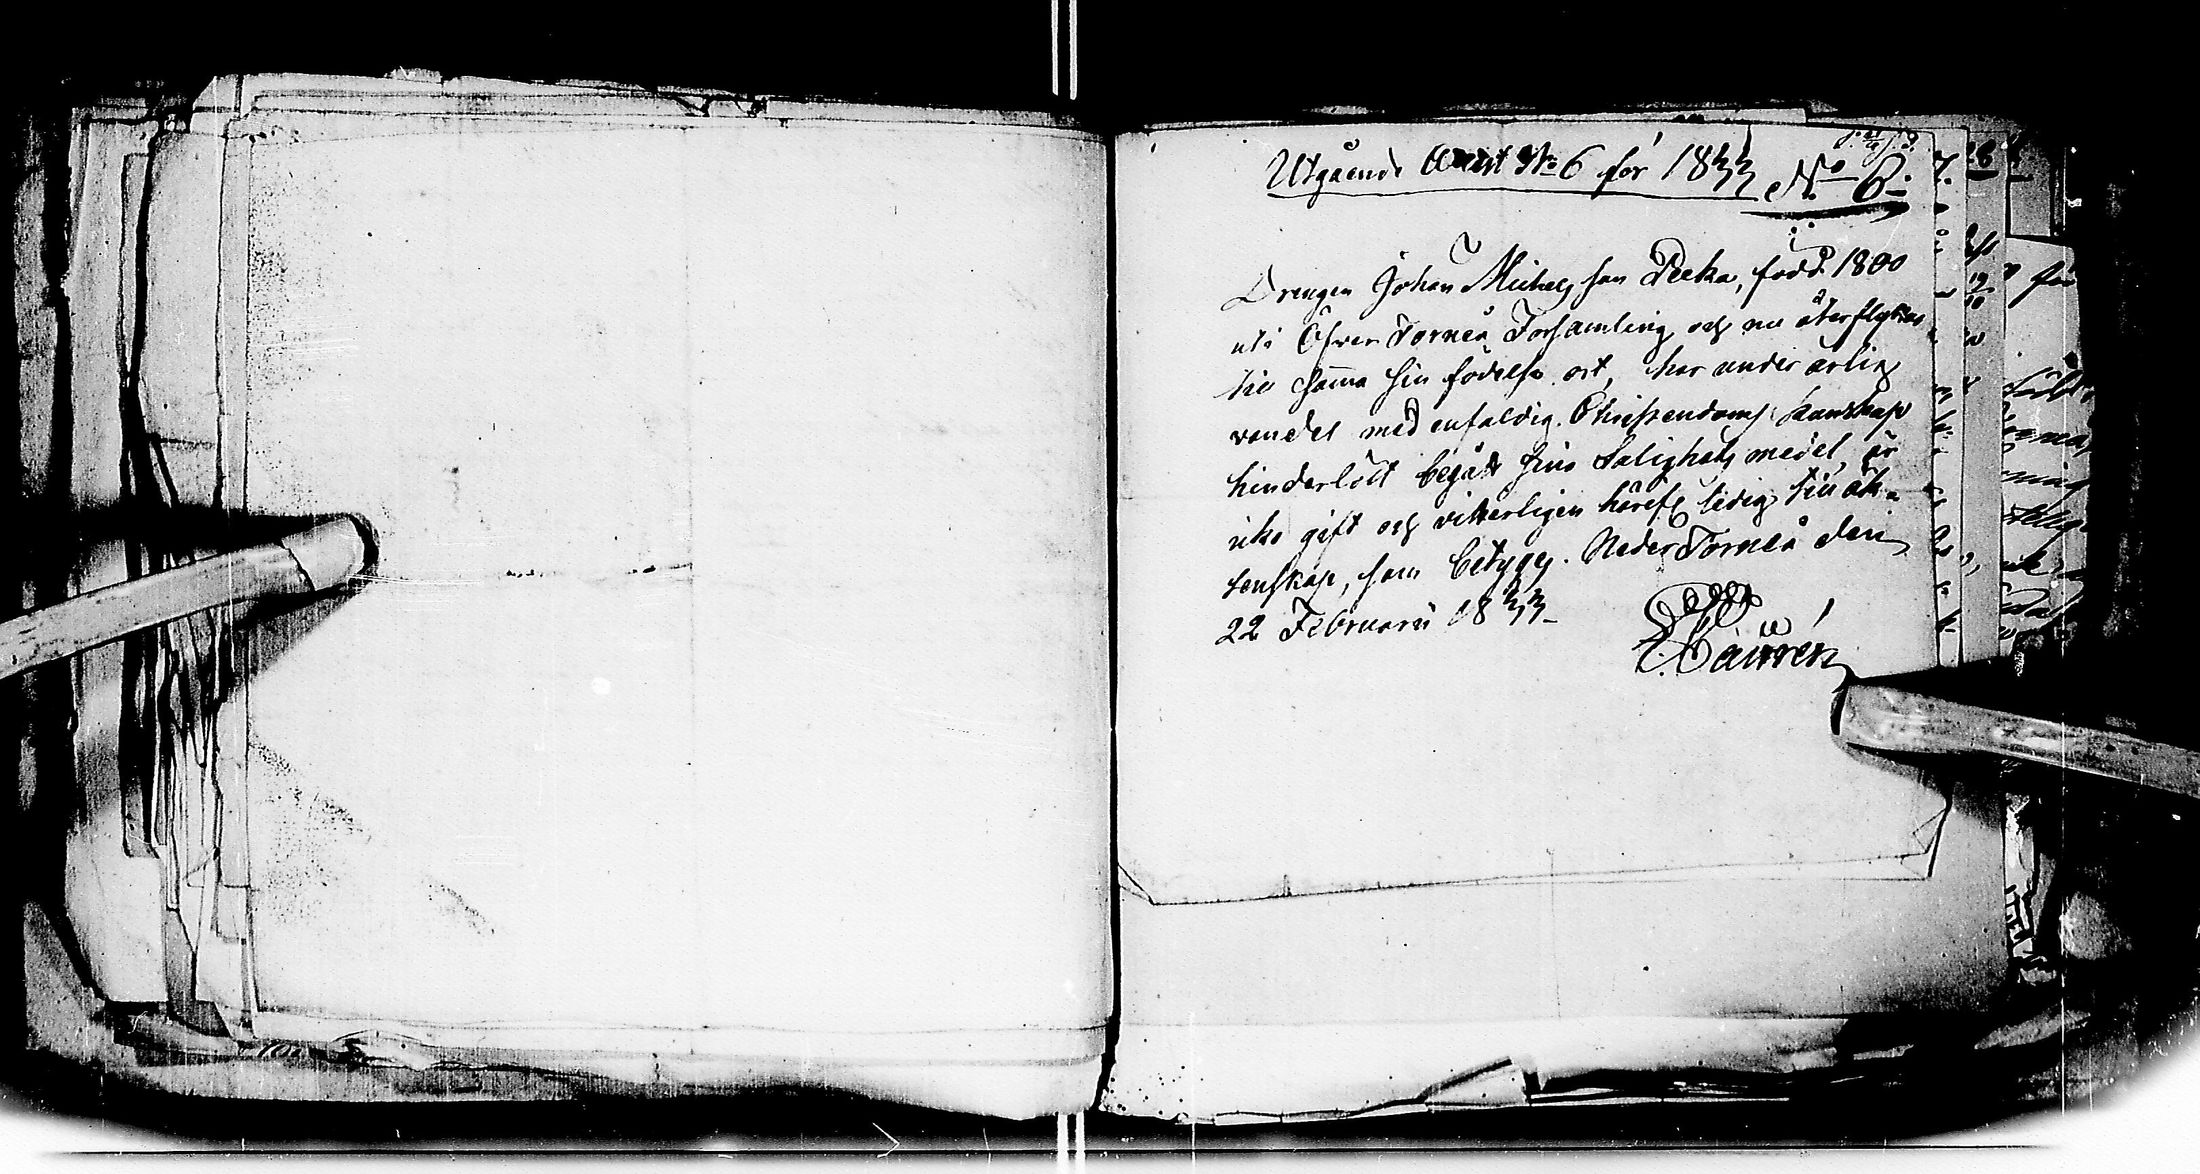 Utgående Attest No 6 för 1833 No 6.
Drengen Johan Michelsson Pecka, född 1800
uti Öfver Torneå Församling och nu återflyttar
till samma sin födelse ort, har under ärlig
vandel med enfaldig Christendoms kunskap
hinderlöst begått sina Salighets medel, är
icke gift och vitterligen härefter ledig till äk-
tenskap, som betygas. Neder Torneå den
22 Februarii 1833